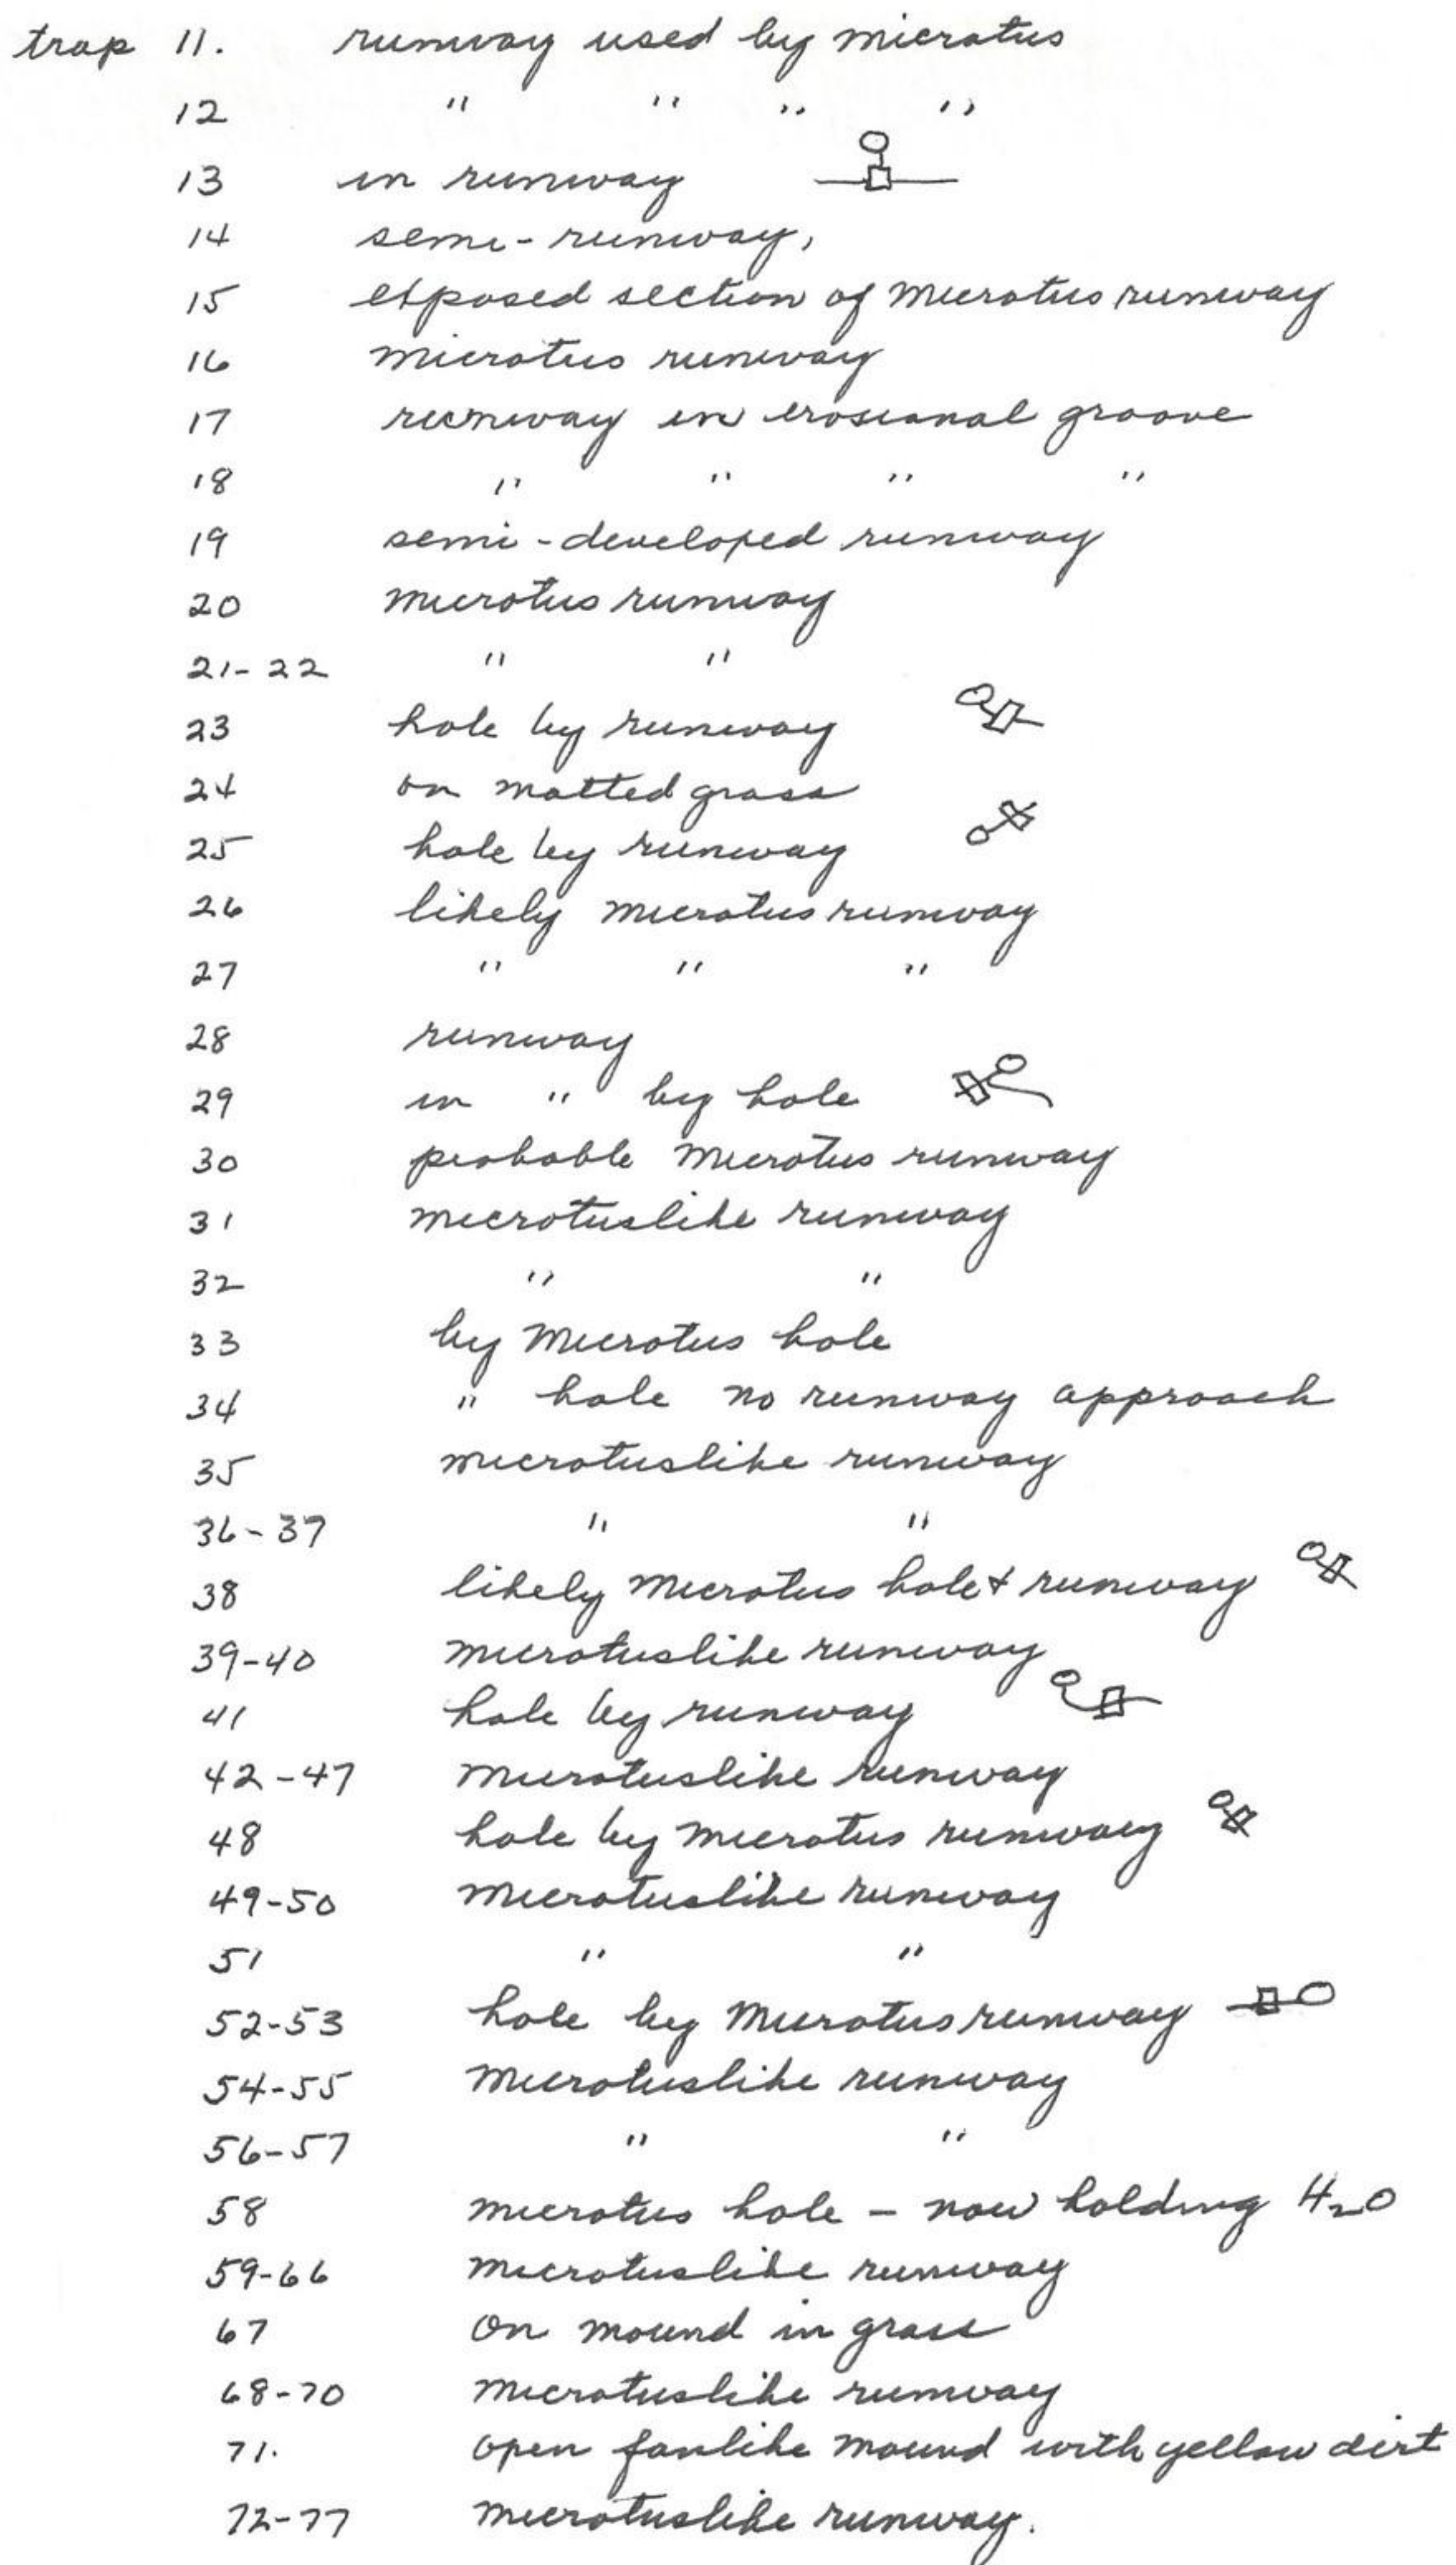 trap 11. runway used by microtus
12 " " " "
13 in runway
14 semi-runway,
15 exposed section of microtus runway
16 microtus runway
17 runway in erosional groove
18 " " " "
19 semi-developed runway
20 microtus runway
21-22 " "
23 hole by runway
24 on matted grass
25 hole by runway
26 likely microtus runway
27 " " "
28 runway
29 in " by hole
30 probable microtus runway
31 microtuslike runway
32 " "
33 by microtus hole
34 " hole no runway approach
35 microtuslike runway
36-37 " "
38 likely microtus hole & runway
39-40 microtuslike runway
41 hole by runway
42-47 microtuslike runway
48 hole by microtus runway
49-50 microtuslike runway
51 " "
52-53 hole by microtus runway
54-55 microtuslike runway
56-57 " "
58 microtus hole - now holding H2O
59-66 microtuslike runway
67 on mound in grass
68-70 microtuslike runway
71. open fanlike mound with yellow dirt
72-77 microtuslike runway.